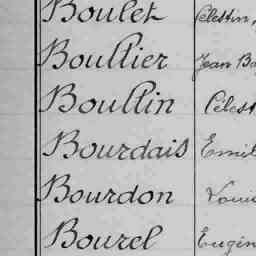 Boulet Célestin,
Boullier Jean Ba
Boullin Célest
Bourdais Emil
Bourdon Loui
Bourel Eugèn